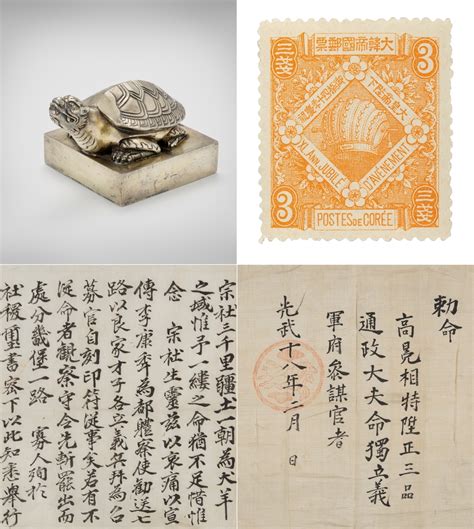 大韓帝國郵票
三錢
三錢
3
3
大皇帝陛下御極四十年慶祝
XL ANN. JUBILÉ
D'AVÈNEMENT
3
3
POSTES DE CORÉE
宗社三千里疆土一朝爲犬羊
之域惟予一縷之命猶不足惜惟
念 宗社生靈茲以哀痛以宣
傳李康秊爲都體察使勸送七
路以良家才子各立義兵拜爲召
募官自刻印符從事矣若有不
從命者觀察守令先斬罷出而
處分畿堡一路 寡人殉於
社稷璽書密下以此知悉擧行
勅命
高晃相特陞正三品
通政大夫命獨立義
軍府參謀官者
光武十八年二月 日